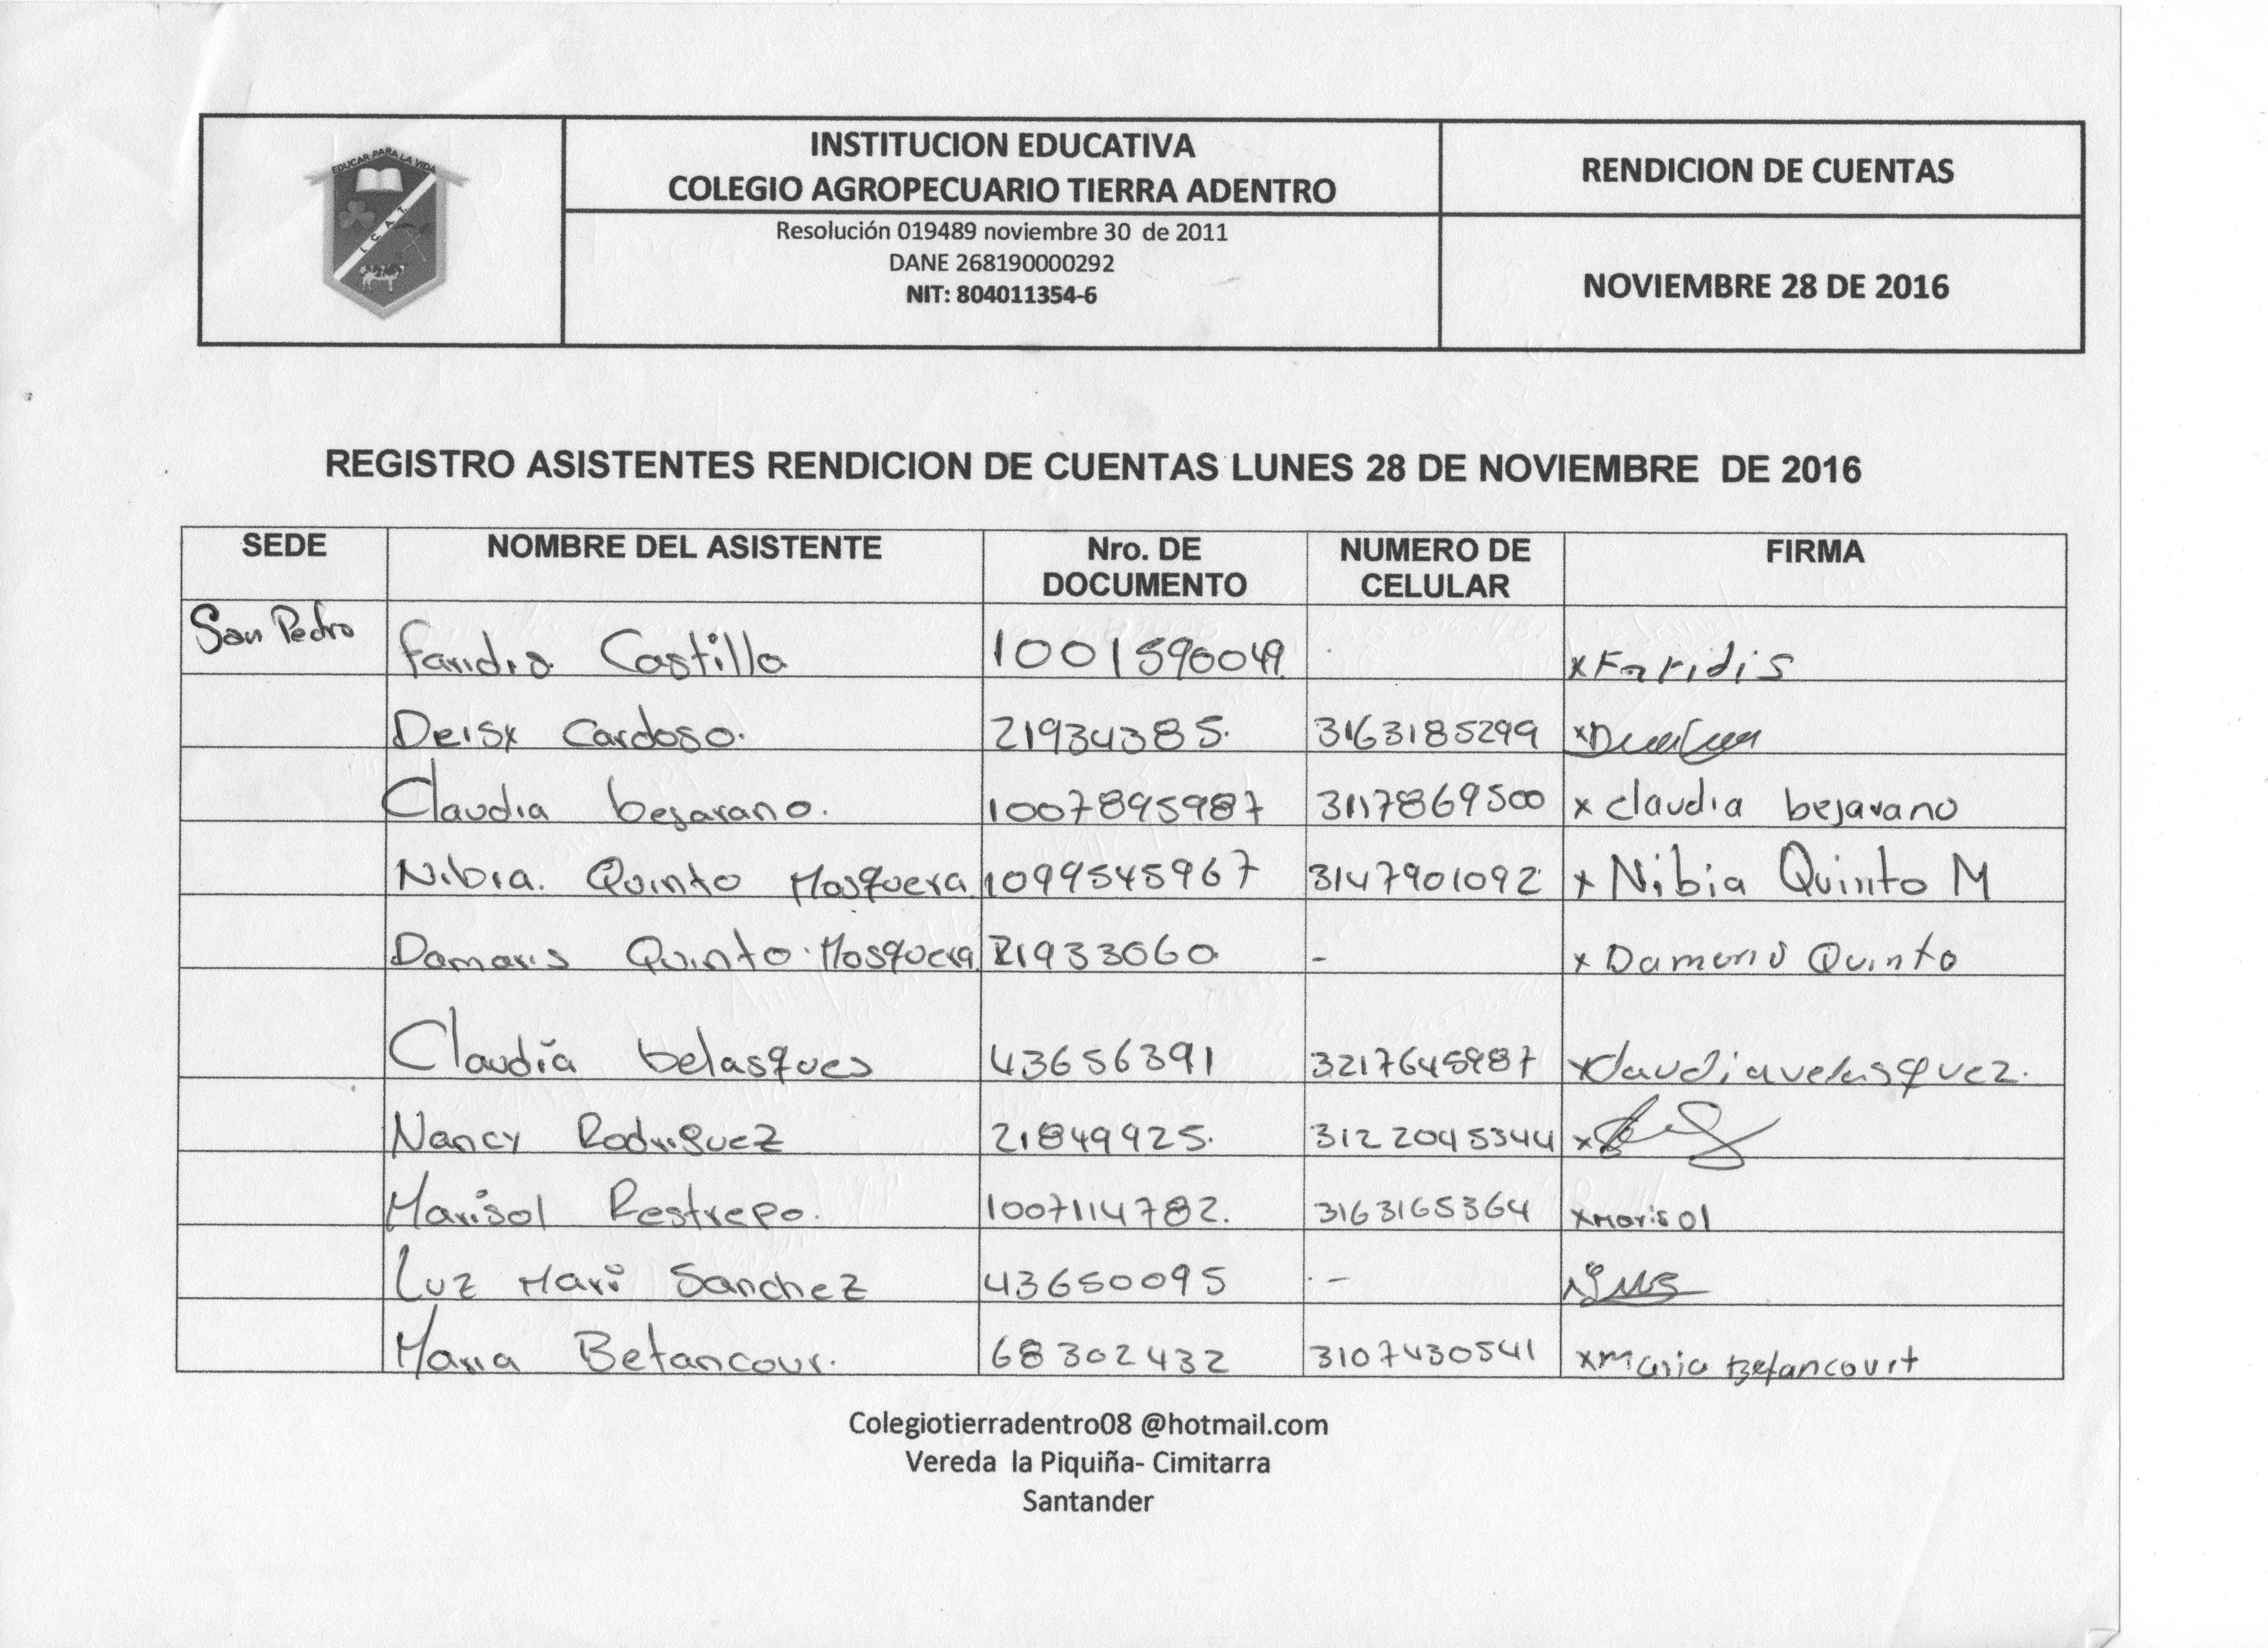 EDUCAR PARA LA VIDA
I. C. A. T.
INSTITUCION EDUCATIVA
COLEGIO AGROPECUARIO TIERRA ADENTRO
RENDICION DE CUENTAS
Resolución 019489 noviembre 30 de 2011
DANE 268190000292
NIT: 804011354-6
NOVIEMBRE 28 DE 2016
REGISTRO ASISTENTES RENDICION DE CUENTAS LUNES 28 DE NOVIEMBRE DE 2016
SEDE NOMBRE DEL ASISTENTE Nro. DE DOCUMENTO NUMERO DE CELULAR FIRMA
San Pedro Faridis Castilla 1001590049. x Faridis
Deisy Cardoso. 21934385. 3163185299 x
Claudia bejarano. 1007895987 3117869500 x claudia bejarano
Nibia. Quinto Mosquera 1099545967 3147901092 x Nibia Quinto M
Damaris Quinto Mosquera 21933060 - x Damaris Quinto
Claudia belasques 43656391 3217645987 x Claudia velasquez.
Nancy Rodriguez 21849925. 3122045344 x
Marisol Restrepo. 1007114782. 3163165364 x Marisol
Luz Mari Sanchez 43650095 -
Maria Betancour. 68302432 3107430541 x Maria Betancourt
Colegiotierradentro08 @hotmail.com
Vereda la Piquiña- Cimitarra
Santander